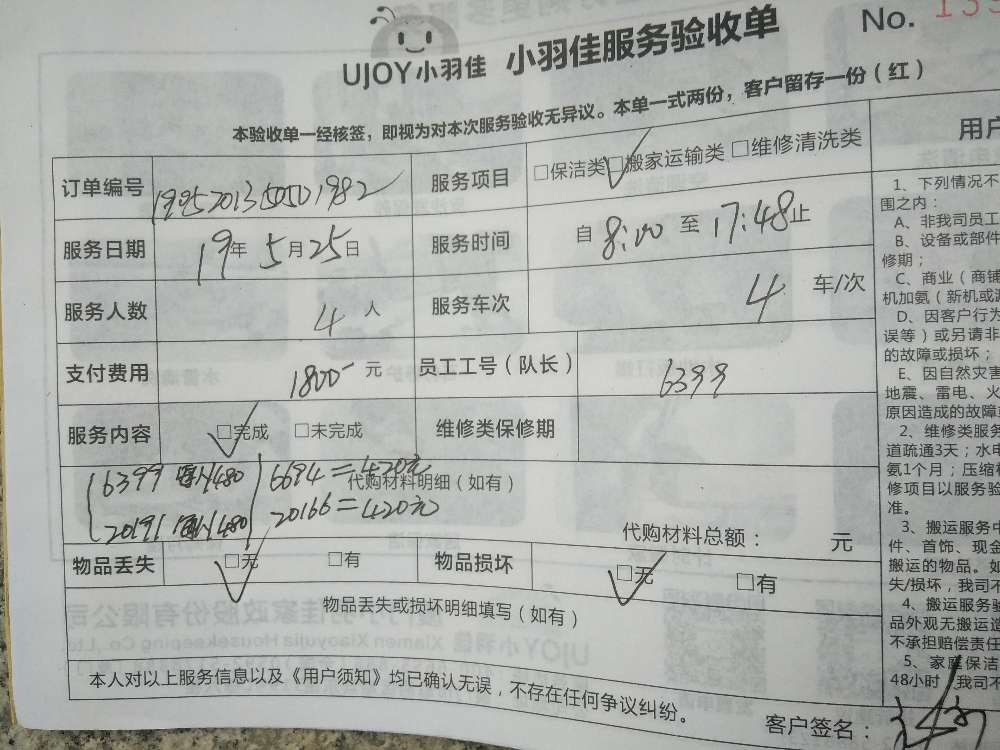 UJOY小羽佳 小羽佳服务验收单 No. 135
本验收单一经核签，即视为对本次服务验收无异议。本单一式两份，客户留存一份（红）
订单编号 服务项目 □保洁类 □搬家运输类 □维修清洗类
服务日期 19年 5月25日 服务时间 自 8:00 至 17:48止
服务人数 4 人 服务车次 4 车/次
支付费用 1800 元 员工工号（队长） 6399
服务内容 □完成 □未完成 维修类保修期
6399 480 6694=420元
代购材料明细（如有）
20191 480 20166=420元
代购材料总额： 元
物品丢失 □无 □有 物品损坏 □无 □有
物品丢失或损坏明细填写（如有）
本人对以上服务信息以及《用户须知》均已确认无误，不存在任何争议纠纷。
客户签名：
用户
1、下列情况不
围之内：
A、非我司员工
B、设备或部件
修期；
C、商业（商铺
机加氨（新机或
D、因客户行为
误等）或另请非
的故障或损坏；
E、因自然灾害
地震、雷电、火
原因造成的故障
2、维修类服务
道疏通3天；水电
氨1个月；压缩机
修项目以服务验
准。
3、搬运服务中
件、首饰、现金
搬运的物品。如
失/损坏，我司不
4、搬运服务验
品外观无搬运造
不承担赔偿责任
5、家庭保洁
48小时，我司不